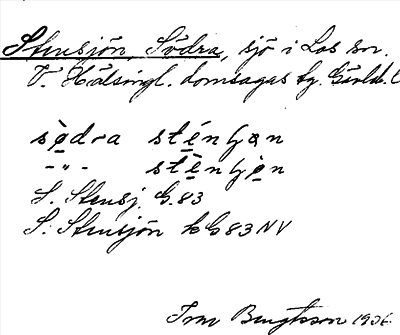 Stensjön, Södra, sjö i Los sn.
V. Hälsingl. domsagas tg. Gävleb. l
sødra stenʃøn
-"- stenʃøn
S. Stensj. G.83
S. Stensjön kG83NV
Ivar Bengtsson 1936